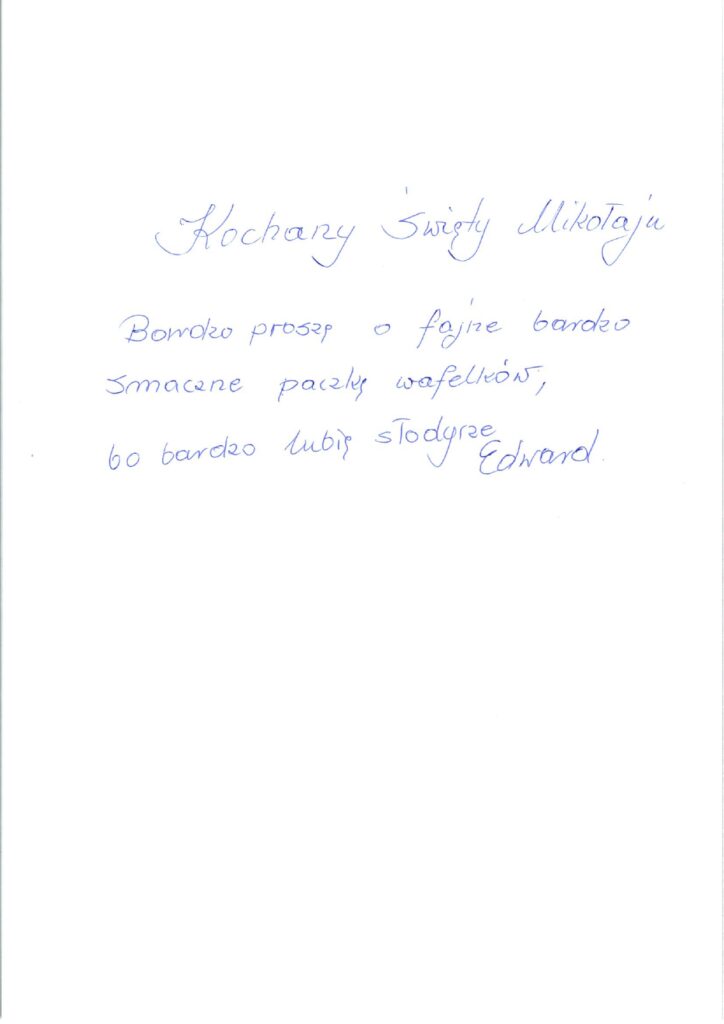 Kochany Święty Mikołaju
Bardzo proszę o fajne bardzo
smaczne paczkę wafelków,
bo bardzo lubię słodyrze
Edward.